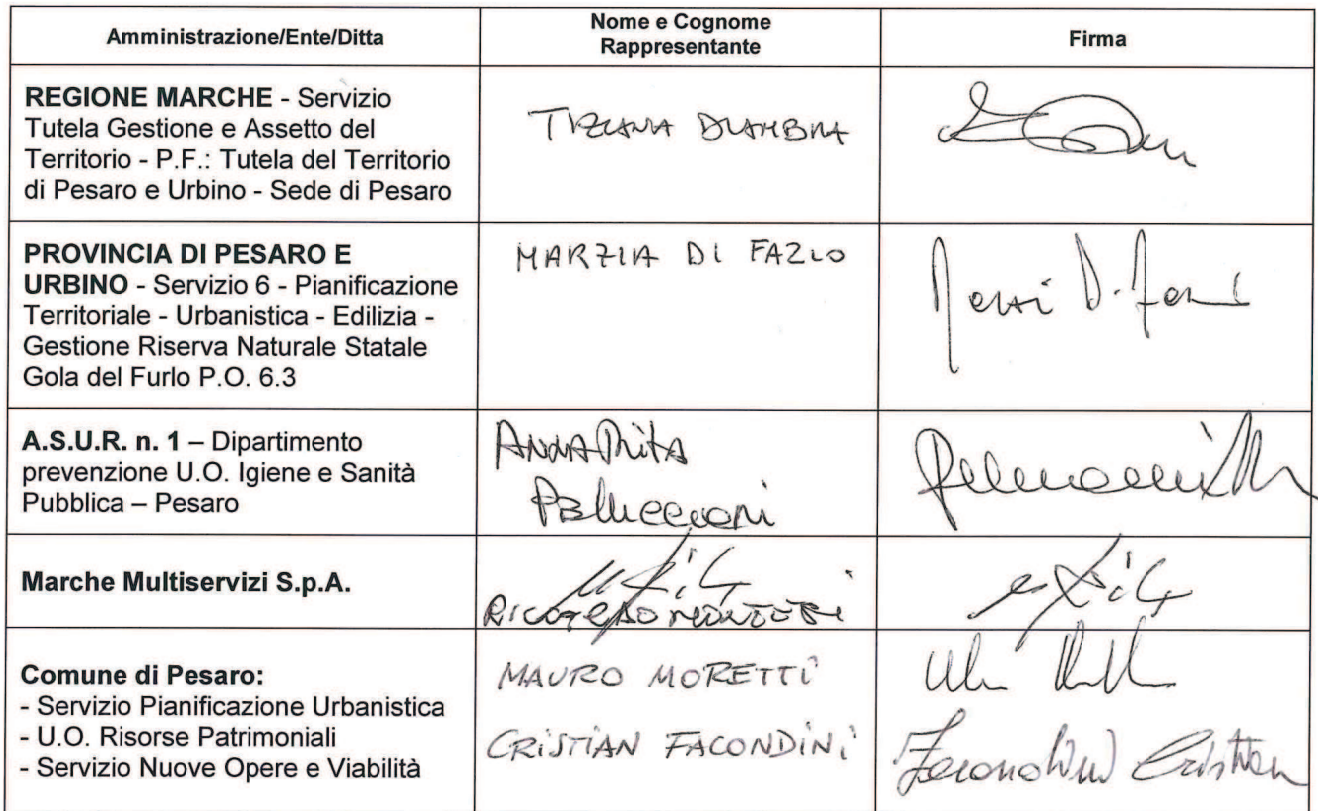 Amministrazione/Ente/Ditta
Nome e Cognome
Rappresentante
Firma
REGIONE MARCHE - Servizio
Tutela Gestione e Assetto del
Territorio - P.F.: Tutela del Territorio
di Pesaro e Urbino - Sede di Pesaro
TIZIANA DIAMBRA
PROVINCIA DI PESARO E
URBINO - Servizio 6 - Pianificazione
Territoriale - Urbanistica - Edilizia -
Gestione Riserva Naturale Statale
Gola del Furlo P.O. 6.3
MARZIA DI FAZIO
A.S.U.R. n. 1 – Dipartimento
prevenzione U.O. Igiene e Sanità
Pubblica – Pesaro
Anna Rita
Marche Multiservizi S.p.A.
Comune di Pesaro:
- Servizio Pianificazione Urbanistica
- U.O. Risorse Patrimoniali
- Servizio Nuove Opere e Viabilità
MAURO MORETTI
CRISTIAN FACONDINI
Facondini Cristian